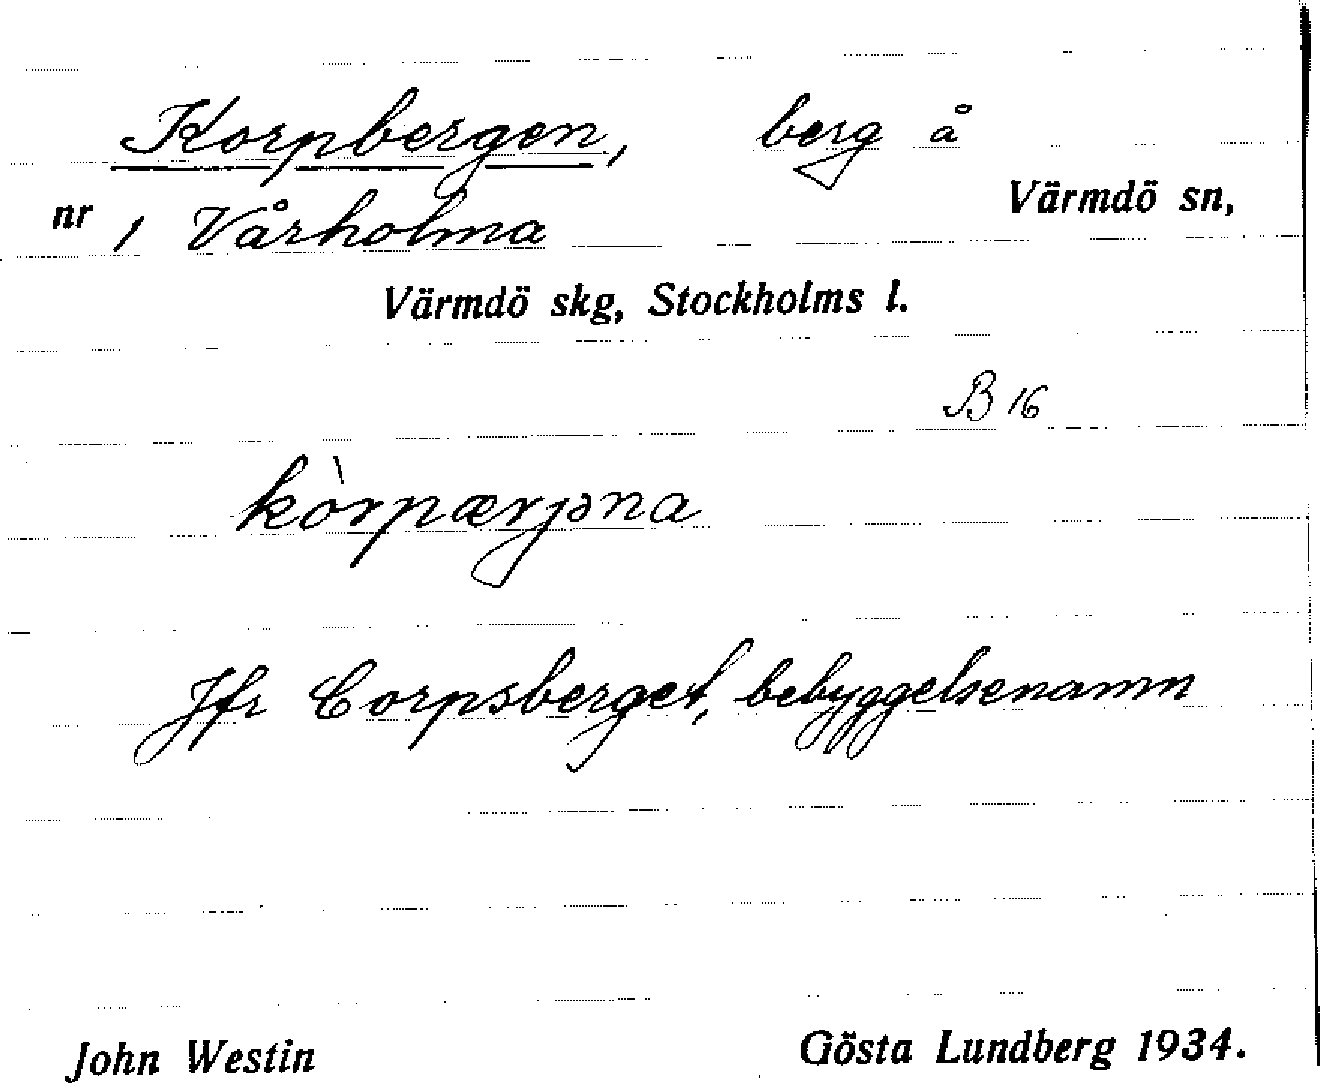 Korpbergen, berg å
nr 1 Vårholma Värmdö sn,
Värmdö skg, Stockholms l.
B 16
kòrpærjəna
Jfr Corpsberget, bebyggelsenamn
John Westin Gösta Lundberg 1934.